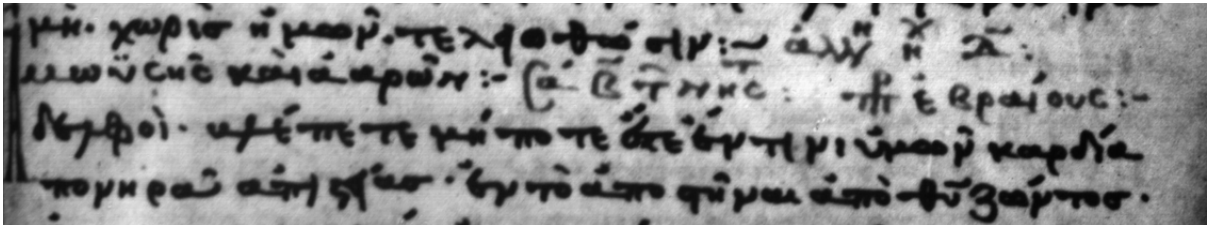 μὴ χωρὶς ἡμῶν. τελειωθῶσιν :~
μωϋσῆς καὶ ἀαρών :- πρ ἑβραίους :-
δελφοί· βλέπετε μήποτε ἔσται ἔν τινι ὑμῶν καρδία
πονηρὰ ἀπιστίας· ἐν τῶ ἀποστῆναι ἀπὸ θῦ ζῶντος·